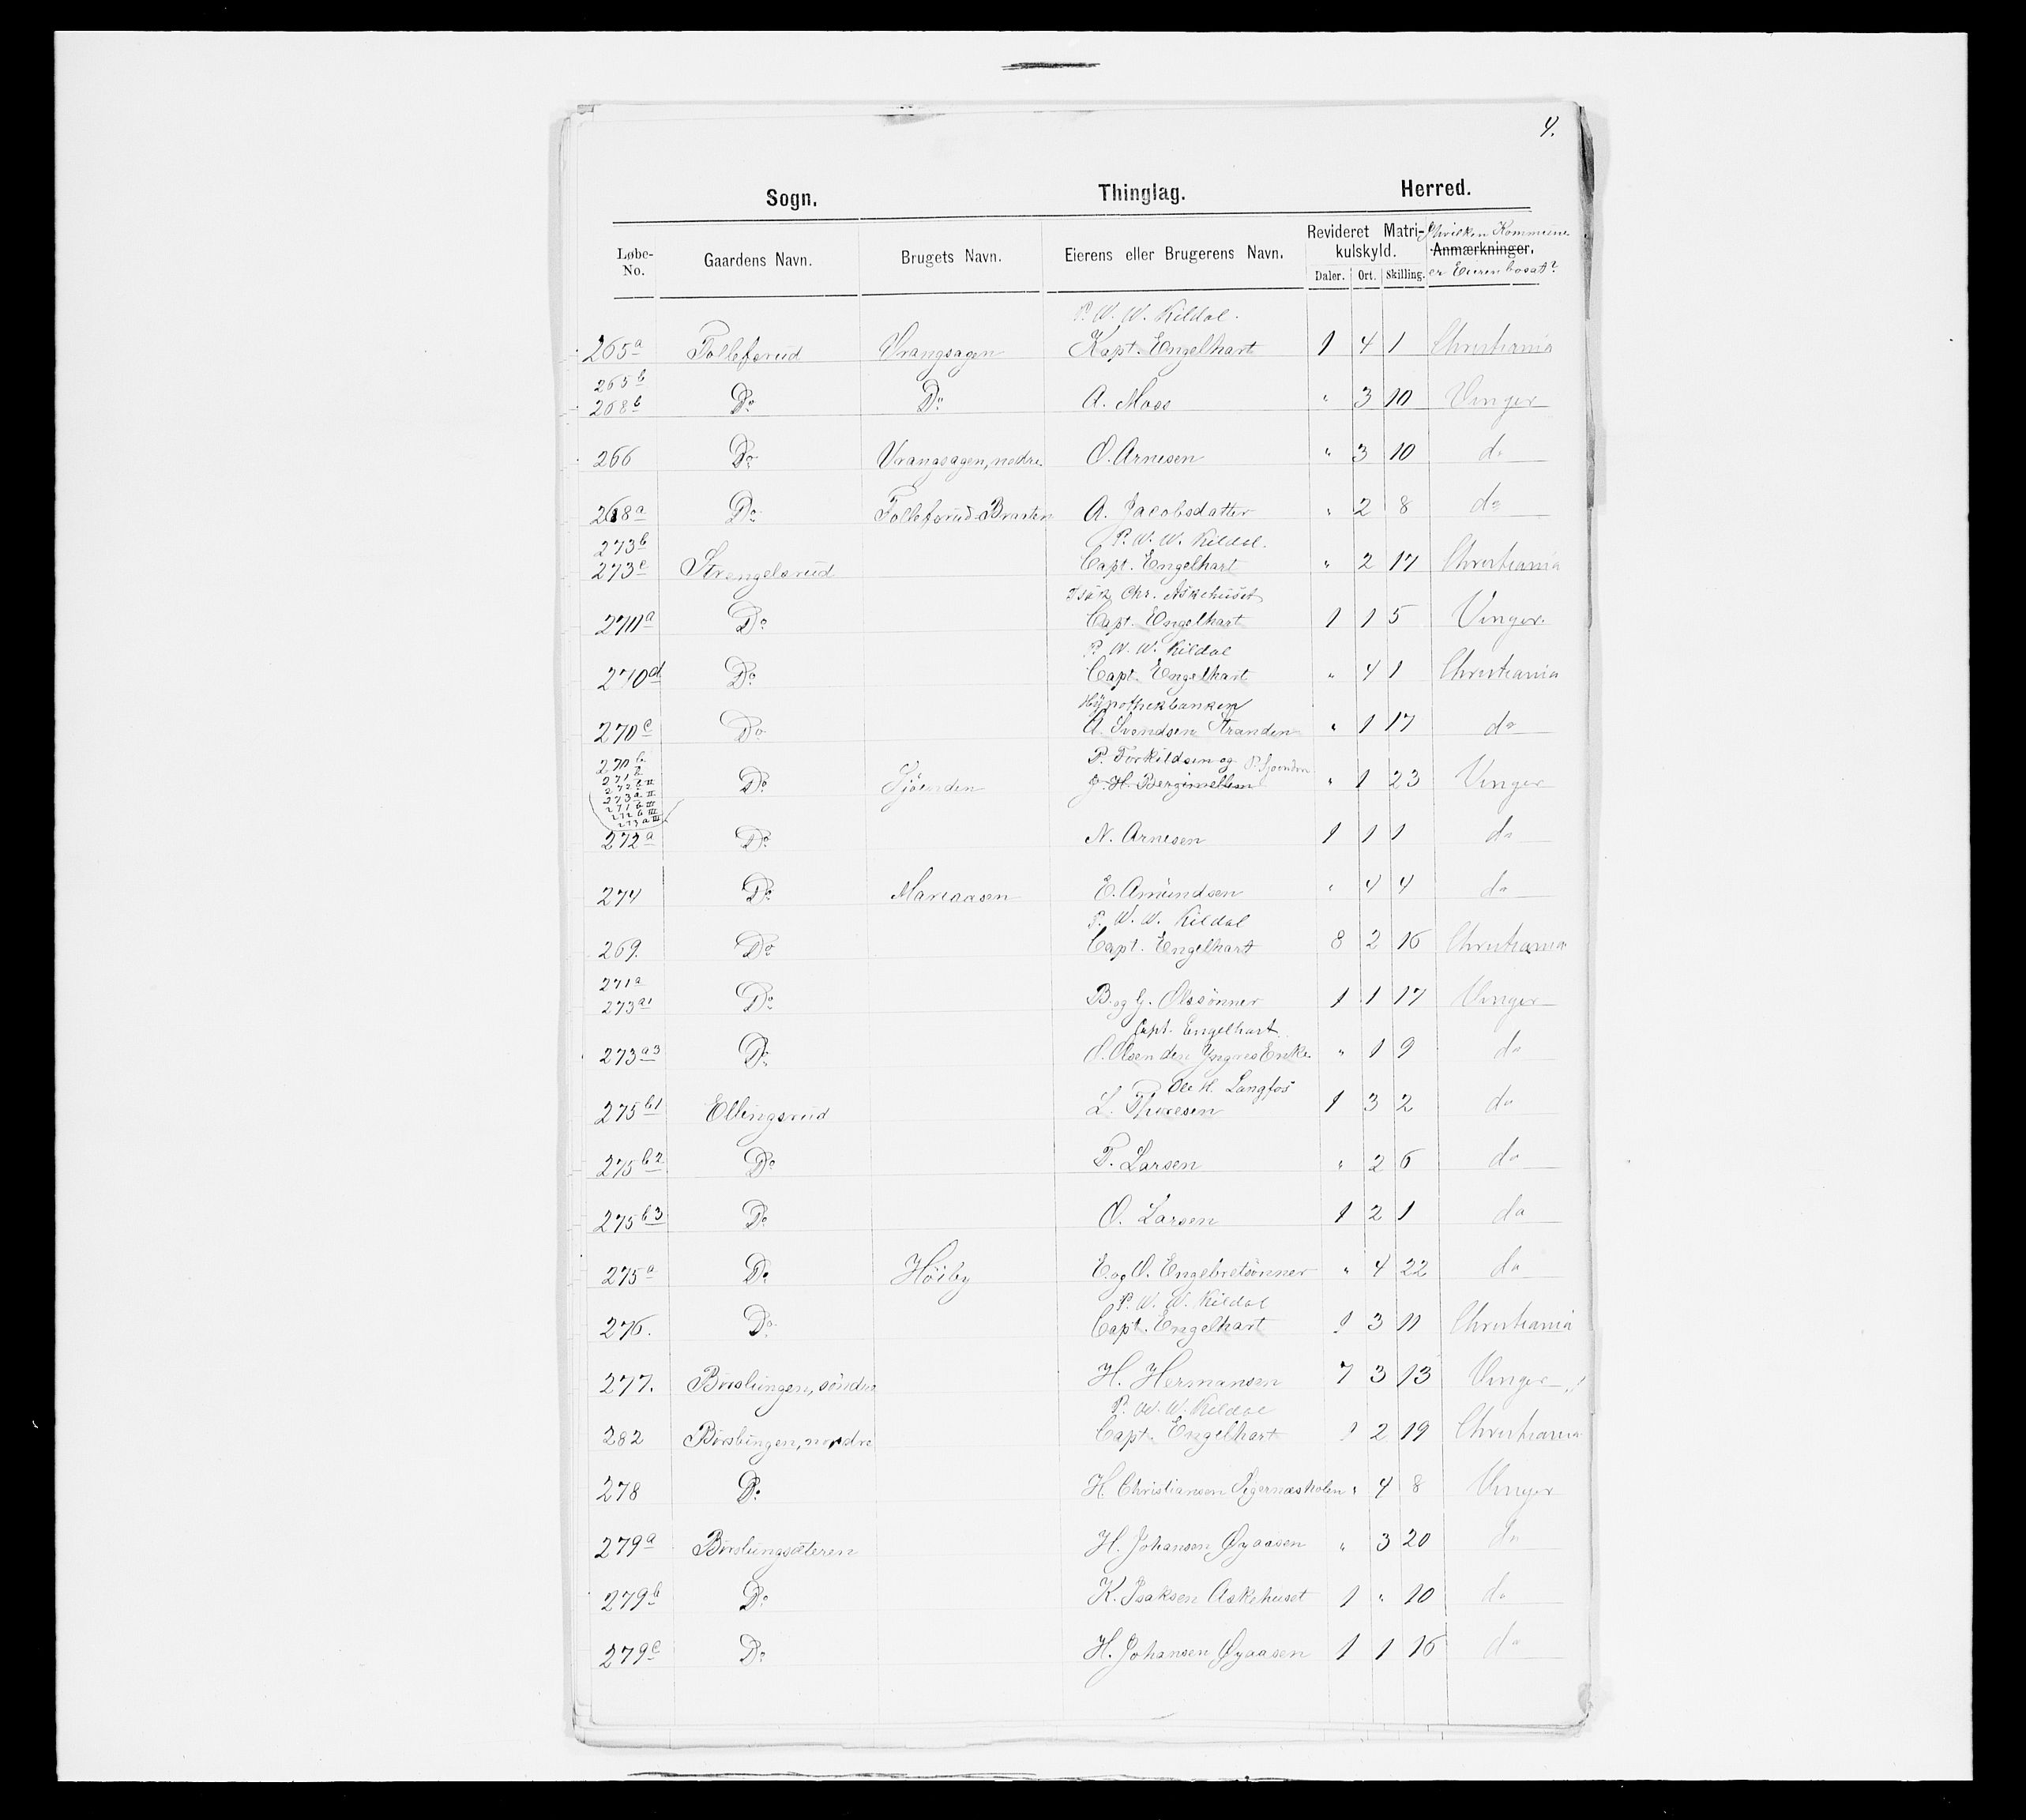 4.
Sogn. Thinglag. Herred.
Løbe-No. Gaardens Navn. Brugets Navn. Eierens eller Brugerens Navn. Revideret Matrikulskyld. Daler. Ort. Skilling. Hvilken Kommune Anmærkninger. er Eieren bosat?
P. W. W. Kildal.
265a Tollefsrud Vrangsagen Kapt. Engelhart 1 4 1 Christiania
265b
268b Do Do A. Moos " 3 10 Vinger
266 Do Vrangsagen, nedre. O. Arnesen " 3 10 do
268a Do Tollefsrud-Braaten A. Jacobsdatter " 2 8 do
273b P. W. W. Kildal.
273c Strengelsrud Capt. Engelhart " 2 17 Christiania
Isak Chr. Askehuset
270a Do Capt. Engelhart 1 1 5 Vinger.
P. W. W. Kildal
270d Do Capt. Engelhart " 4 1 Christiania
Hypothekbanken
270c Do A. Svendsen Stranden " 1 17 do
270b P. Torkildsen og P. Sjoenden
271b
272b II
273a II
271b III
272b III
273a III
Do Sjöenden J. H. Bergimellem " 1 23 Vinger
272a Do N. Arnesen 1 1 1 do
274 Do Mariaasen E. Amundsen " 4 4 do
P. W. W. Kildal
269. Do Capt. Engelhart 8 2 16 Christiania
271a
273a1 Do B. og G. Olssönner 1 1 17 Vinger
Capt. Engelhart
273a3 Do O. Olsen den Yngres Enke. " 1 9 do
Ole H. Langfos
275b1 Ellingsrud L. Thoresen 1 3 2 do
275b2 Do P. Larsen " 2 6 do
275b3 Do O. Larsen 1 2 1 do
275a Do Höiby E. og O. Engebretsönner " 4 22 do
P. W. W. Kildal
276. Do Capt. Engelhart 1 3 11 Christiania
277. Börslungen, söndre H. Hermansen 7 3 13 Vinger
P. W. W. Kildal
282 Börslungen, nordre Capt. Engelhart 1 2 19 Christiania
278 Do H. Christiansen Sigernæsholen " 4 8 Vinger
279a Börslungsæteren H. Johansen Øyaasen " 3 20 do
279b Do K. Isaksen Askehuset 1 " 10 do
279c Do H. Johansen Øyaasen 1 1 16 do